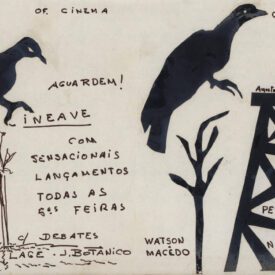 OF. CINEMA
AGUARDEM!
CINEAVE
COM
SENSACIONAIS
LANÇAMENTOS
TODAS AS
6ªs FEIRAS
C/ DEBATES
LAGE - J. BOTÂNICO
WATSON
MACÊDO
PE